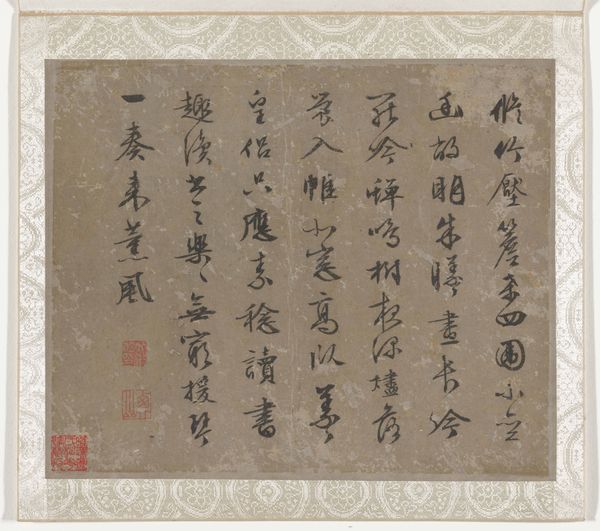 脩竹壓簷桑四圍小齋
幽敞明朱曦晝長吟
罷蟬鳴樹夜深燼落
螢入幃北窗高臥羲
皇侶只應素稔讀書
趣讀書之樂〻無窮援琴
一奏來薰風